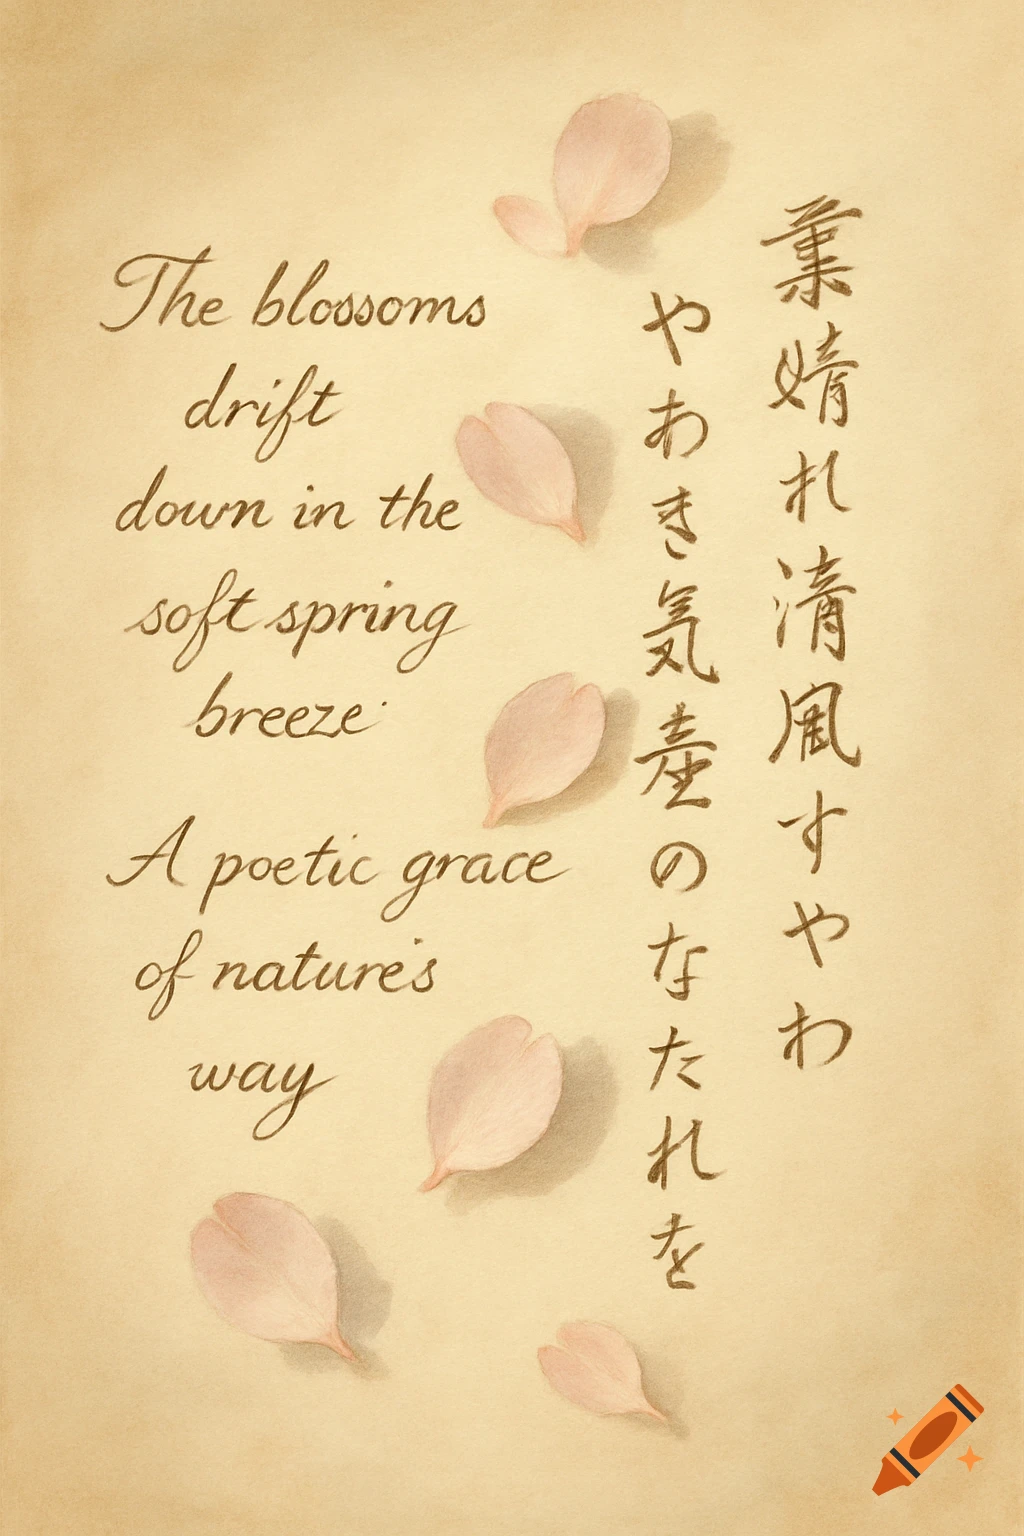 The blossoms
drift
down in the
soft spring
breeze
A poetic grace
of nature's
way
れ清風すやわ
やわき気
のなたれを